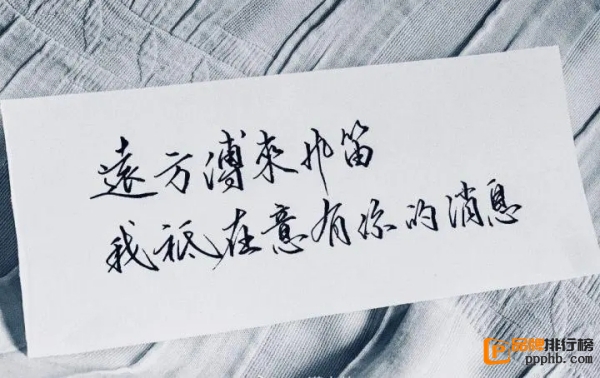 遠方傳來风笛
我祗在意有你的消息
品牌排行榜
ppphb.com